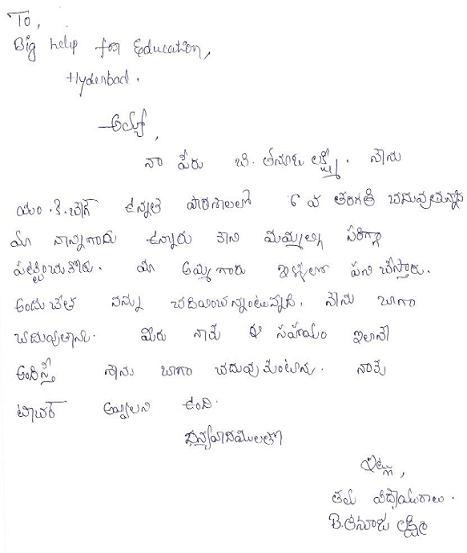 To,
Big help for Education,
Hyderabad.
అయ్యా,
నా పేరు బి. తనూజ లక్ష్మి. నేను
యం.కె.బాగ్ ఉన్నత పాఠశాలలో 6 వ తరగతి చదువుతున్నాను
మా నాన్నగారు ఉన్నారు కాని మమ్మల్ని సరిగ్గా
పట్టించుకోరు. మా అమ్మ గారు ఇళ్ళలో పని చేస్తారు.
అందుచేత నన్ను చదివించ లేకపోతున్నది. నేను బాగా
చదువుతాను. మీరు నాకు ఈ సహాయం ఇలానే
అందిస్తే నేను బాగా చదువుకుంటాను. నాకు
టీచర్ అవ్వాలని ఉంది.
ధన్యవాదములతో
ఇట్లు,
తమ విద్యార్థురాలు.
B.తనూజ లక్ష్మి